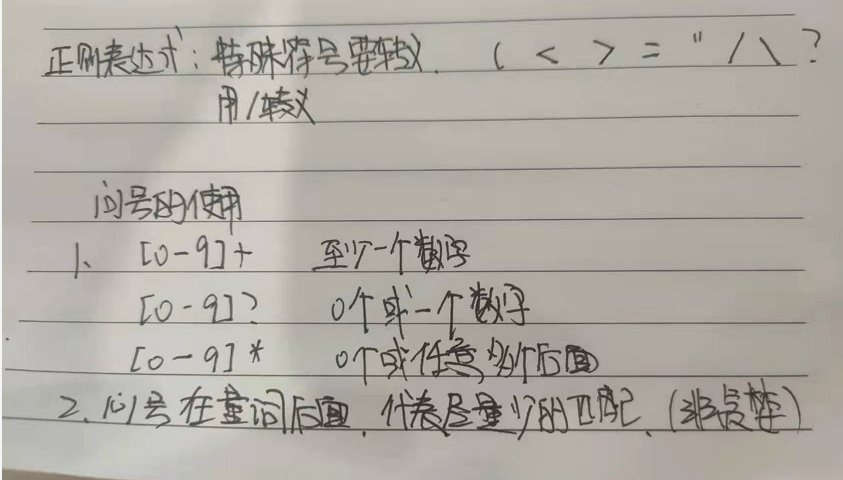 正则表达式：特殊符号要转义. ( < > = " / \ ?
用/转义
问号的使用
1、 [0-9]+ 至少一个数字
[0-9]? 0个或一个数字
[0-9]* 0个或任意多个后面
2、问号在量词后面，代表尽量少的匹配、(非贪婪)